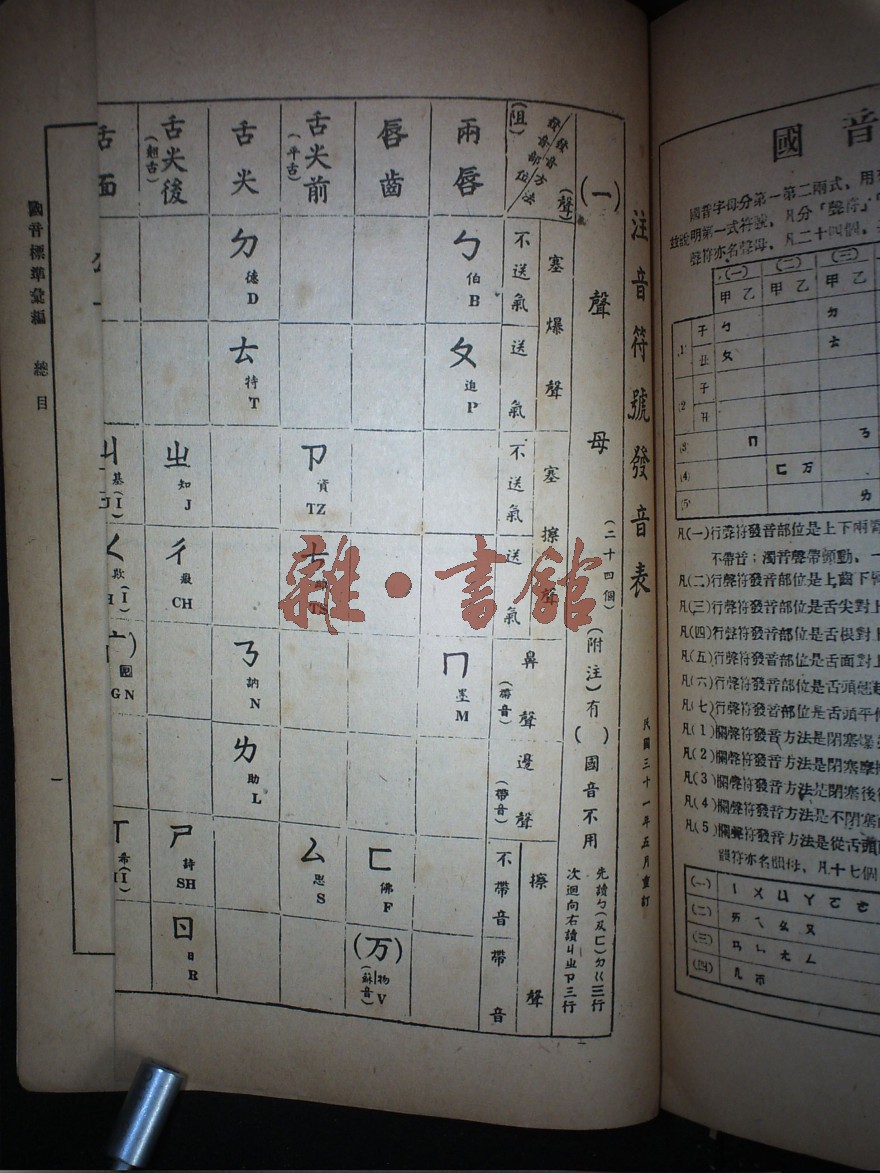 國音
國音字母分第一第二兩式，用
茲說明第一式符號，凡分「聲符」
聲符亦名聲母，凡二十四個，
(一) (二) (三)
甲 乙 甲 乙 甲 乙
子 ㄅ ㄉ
丑 ㄆ ㄊ
子
ㄇ ㄋ
(4) ㄈ 万
ㄌ
凡(一)行聲符發音部位是上下兩脣
不帶音；濁音聲帶顫動，一
凡(二)行聲符發音部位是上齒下脣
凡(三)行聲符發音部位是舌尖對上
凡(四)行聲符發音部位是舌根對上
凡(五)行聲符發音部位是舌面對上
凡(六)行聲符發音部位是舌頭翹起
凡(七)行聲符發音部位是舌頭平伸
凡(1)欄聲符發音方法是閉塞爆
凡(2)欄聲符發音方法是閉塞摩擦
凡(3)欄聲符發音方法是閉塞後
凡(4)欄聲符發音方法是不閉塞
凡(5)欄聲符發音方法是從舌頭
韻符亦名韻母，凡十七個
(一) ㄧ ㄨ ㄩ ㄚ ㄛ ㄜ
(二) ㄞ ㄟ ㄠ ㄡ
(三) ㄢ ㄣ ㄤ ㄥ
(四) ㄦ ㄭ
注音符號發音表
民國三十一年五月重訂
(一)聲母(二十四個)(附注)有( )國音不用
先讀ㄅ(及ㄈ)ㄉㄍ三行
次迴向右讀ㄐㄓㄗ三行
發音部位 發音方法
(阻) (聲)
塞爆聲 塞擦聲 鼻聲(帶音) 邊聲(帶音) 擦聲
不送氣 送氣 不送氣 送氣 不帶音 帶音
兩脣
ㄅ 伯 B
ㄆ 迫 P
ㄇ 墨 M
脣齒
ㄈ 佛 F
(万) 物 V (蘇音)
舌尖前(平舌)
ㄗ 資 TZ
ㄘ TS
ㄙ 思 S
舌尖
ㄉ 德 D
ㄊ 特 T
ㄋ 訥 N
ㄌ 肋 L
舌尖後(翹舌)
ㄓ 知 J
ㄔ 癡 CH
ㄕ 詩 SH
ㄖ 日 R
舌面
ㄐ 基 (I)
ㄑ 欺 (I)
GN
ㄒ 希 (I)
國音標準彙編 總目
一
雜·書館